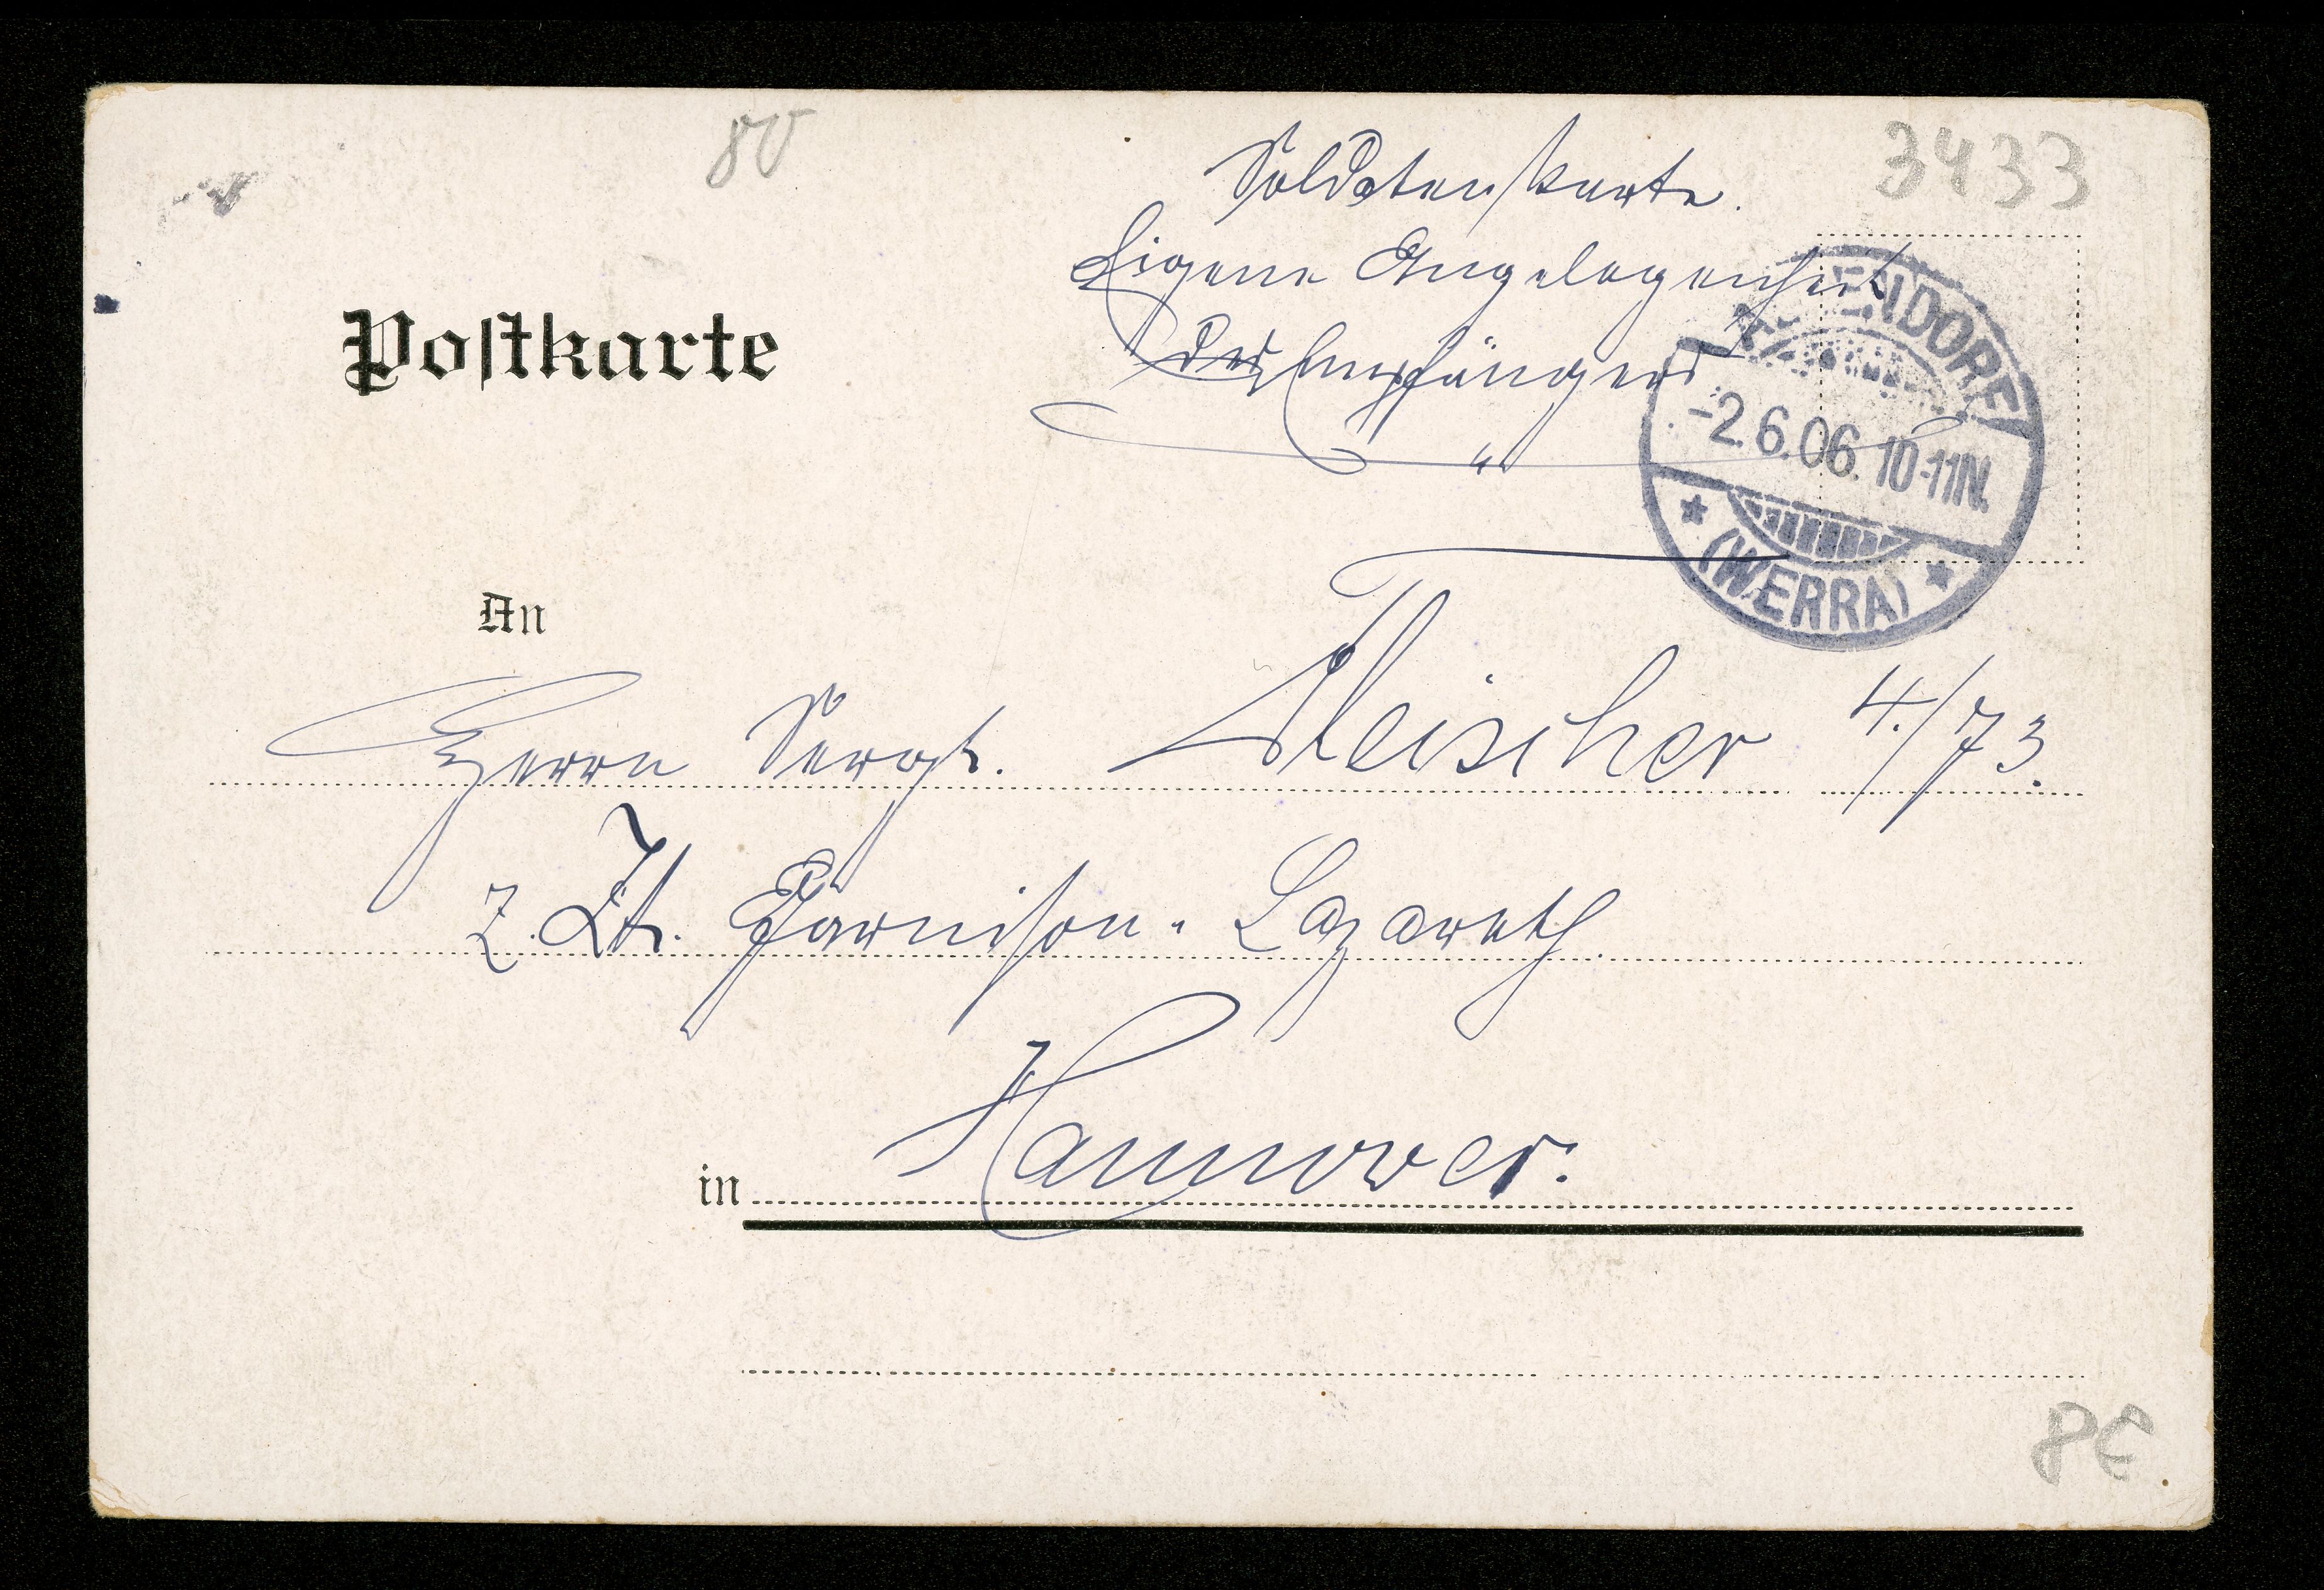 80
3433
Soldatenkarte.
Eigene Angelegenheit
des Empfängers
Postkarte
ENDORF
-2.6.06. 10-11N.
(WERRA)
An
Herrn Sergt. Fleischer 4./73.
z. Zt. Garnison-Lazareth
in Hannover.
8€